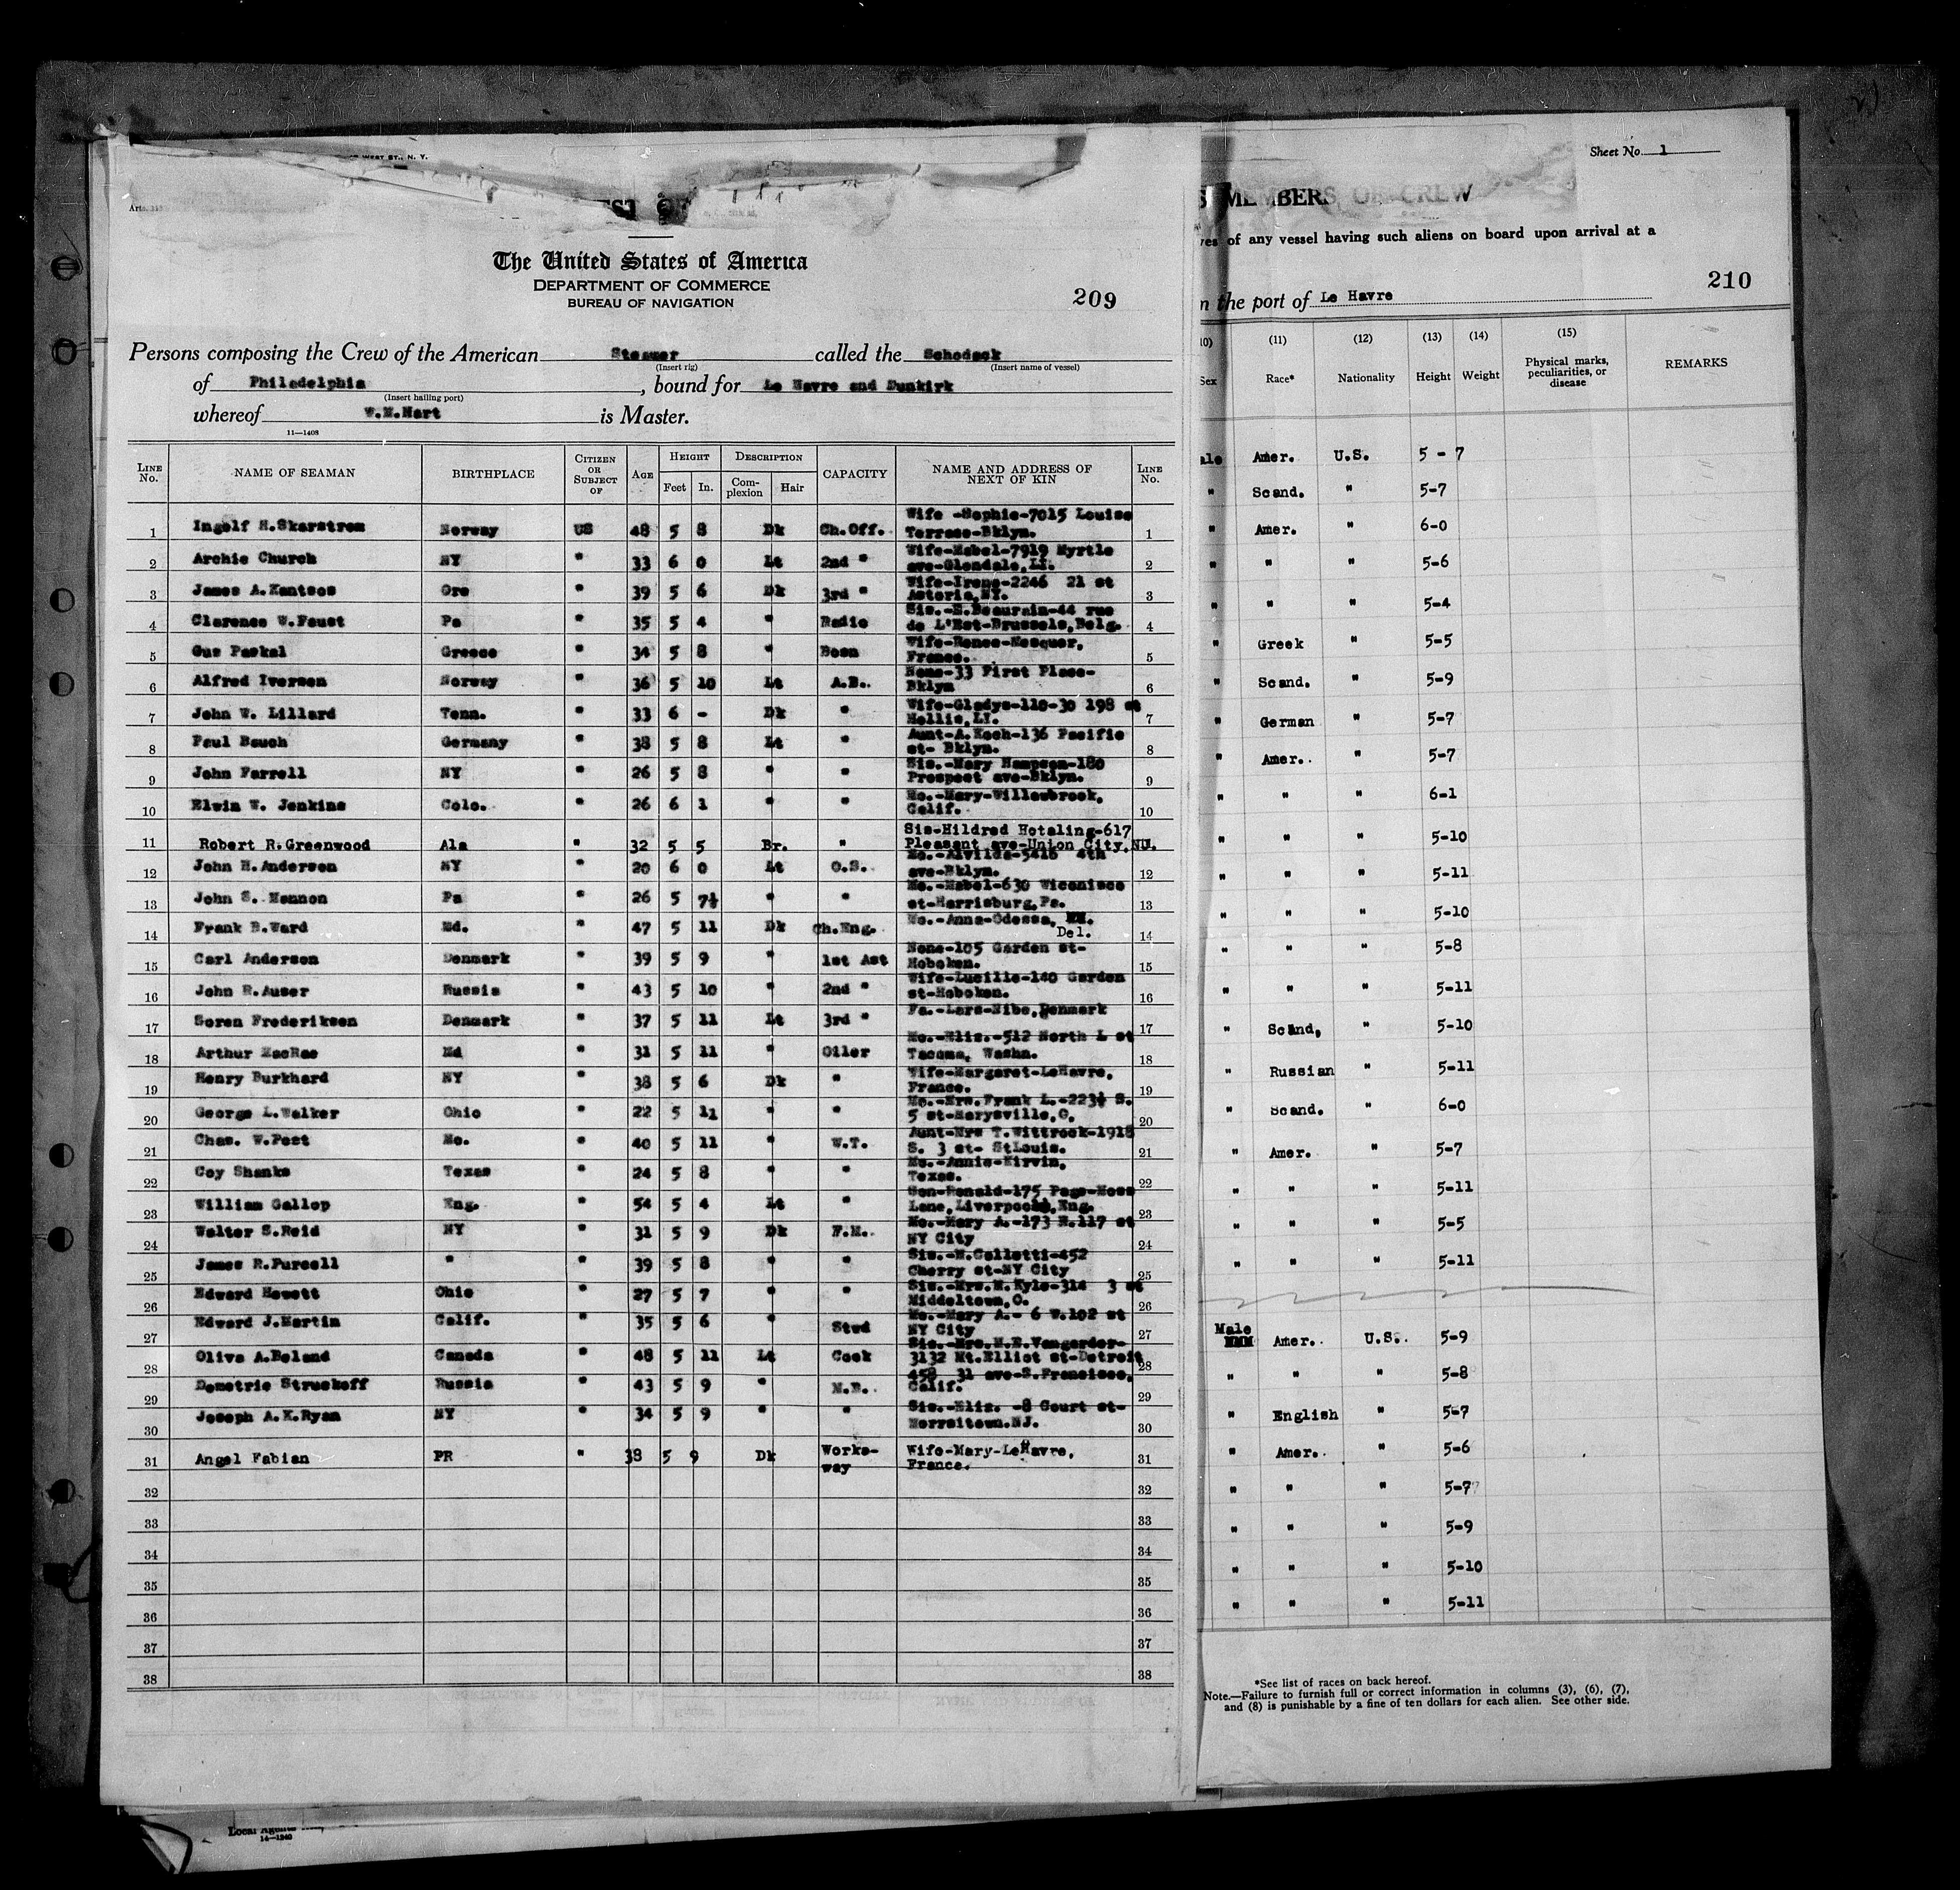 WEST ST., N. Y.
The United States of America
DEPARTMENT OF COMMERCE
BUREAU OF NAVIGATION
209
Persons composing the Crew of the American Steamer called the Schodack
(Insert rig) (Insert name of vessel)
of Philadelphia, bound for Le Havre and Dunkirk
(Insert hailing port)
whereof W.M.Hart is Master.
11—1408
LINE No. NAME OF SEAMAN BIRTHPLACE CITIZEN OR SUBJECT OF AGE HEIGHT Feet In. DESCRIPTION Complexion Hair CAPACITY NAME AND ADDRESS OF NEXT OF KIN LINE No.
1 Ingolf H.Skarstrom Norway US 48 5 8 Dk Ch.Off. Wife -Sophie-7015 Louise Terrace-Bklyn. 1
2 Archie Church NY " 33 6 0 Lt 2nd " Wife-Mabel-7919 Myrtle ave-Glendale,LI. 2
3 James A.Kantsos Ore " 39 5 6 Dk 3rd " Wife-Irene-2246 21 st Astoria,NY. 3
4 Clarence W.Faust Pa " 35 5 4 " Radio Sis.-E.Beaurain-44 rue de L'Est-Brussels,Belg. 4
5 Gus Paskal Greece " 34 5 8 " Bosn Wife-Renee-Mesquer, France. 5
6 Alfred Iversen Norway " 36 5 10 Lt A.B. None-33 First Place-Bklyn 6
7 John W. Lillard Tenn. " 33 6 - Dk " Wife-Gladys-110-30 198 st Hollis,LI. 7
8 Paul Bauch Germany " 38 5 8 Lt " Aunt-A.Koch-136 Pacific st- Bklyn. 8
9 John Farrell NY " 26 5 8 " " Sis.-Mary Hampson-180 Prospect ave-Bklyn. 9
10 Elwin W. Jenkins Colo. " 26 6 1 " " Mo.-Mary-Willowbrook, Calif. 10
11 Robert R.Greenwood Ala " 32 5 5 Br. " Sis-Hildred Hotaling-617 Pleasant ave-Union City,NJ. 11
12 John H.Andersen NY " 20 6 0 Lt O.S. Mo.-Alvilda-5416 4th ave-Bklyn. 12
13 John S. Hannon Pa " 26 5 7½ " " Mo.-Mabel-630 Wiconisco st-Harrisburg,Pa. 13
14 Frank B.Ward Md. " 47 5 11 Dk Ch.Eng. Mo.-Anna-Odessa, Del. 14
15 Carl Anderson Denmark " 39 5 9 " 1st Ast None-105 Garden st-Hoboken. 15
16 John R.Auser Russia " 43 5 10 " 2nd " Wife-Lucille-140 Garden st-Hoboken. 16
17 Soren Frederiksen Denmark " 37 5 11 Lt 3rd " Fa.-Lars-Ribe,Denmark 17
18 Arthur MacRae Md " 31 5 11 " Oiler Mo.-Eliz.-512 North L st Tacoma, Washn. 18
19 Henry Burkhard NY " 38 5 6 Dk " Wife-Margaret-LeHavre, France. 19
20 George L.Walker Ohio " 22 5 11 " " Mo.-Mrs.Frank L.-223½ S. 5 st-Marysville,O. 20
21 Chas. W.Post Mo. " 40 5 11 " W.T. Aunt-Mrs T.Wittrock-1918 S. 3 st- StLouis. 21
22 Coy Shanks Texas " 24 5 8 " " Mo.-Annie-Kirvin, Texas. 22
23 William Gallop Eng. " 54 5 4 Lt " Son-Ronald-175 Page-Moss Lane,Liverpool,Eng. 23
24 Walter S.Reid NY " 31 5 9 Dk F.M. Mo.-Mary A.-173 E.117 st NY City 24
25 James R.Purcell " " 39 5 8 " " Sis.-M.Colletti-452 Cherry st-NY City 25
26 Edward Hewett Ohio " 27 5 7 " " Sis.-Mrs.M.Kyle-314 3 st Middeltown,O. 26
27 Edward J.Martin Calif. " 35 5 6 " Stwd Mo.-Mary A.- 6 W.102 st NY City 27
28 Oliva A.Beland Canada " 48 5 11 Lt Cook Sis.-Mrs.M.E.Vangorder-3132 Mt.Elliot st-Detroit 28
29 Demetrie Struckoff Russia " 43 5 9 " M.B. 458 31 ave-S.Francisco, Calif. 29
30 Joseph A.K.Ryan NY " 34 5 9 " " Sis.-Eliz. -8 Court st-Morrsitown.NJ. 30
31 Angel Fabian PR " 38 5 9 Dk Works-way Wife-Mary-LeHavre, France. 31
32 32
33 33
34 34
35 35
36 36
37 37
38 38
14—1240
Sheet No. 1
MEMBERS OF CREW
of any vessel having such aliens on board upon arrival at a
210
the port of Le Havre
(11) (12) (13) (14) (15)
Sex Race* Nationality Height Weight Physical marks, peculiarities, or disease REMARKS
Amer. U.S. 5 - 7
" Scand. " 5-7
" Amer. " 6-0
" " " 5-6
" " " 5-4
" Greek " 5-5
" Scand. " 5-9
" German " 5-7
" Amer. " 5-7
" " " 6-1
" " " 5-10
" " " 5-11
" " " 5-10
" " " 5-8
" " " 5-11
" Scand, " 5-10
" Russian " 5-11
" Scand. " 6-0
" Amer. " 5-7
" " " 5-11
" " " 5-5
" " " 5-11
Male Amer. U.S. 5-9
" " " 5-8
" English " 5-7
" Amer. " 5-6
" " " 5-7
" " " 5-9
" " " 5-10
" " " 5-11
*See list of races on back hereof.
Note.—Failure to furnish full or correct information in columns (3), (6), (7),
and (8) is punishable by a fine of ten dollars for each alien. See other side.